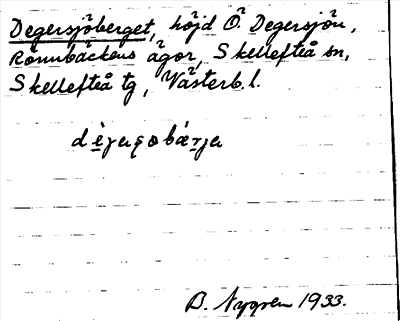 Degersjöberget, höjd Ö Degersjön,
Rönnbäckens ägor, Skellefteå sn,
Skellefteå tg, Västerb. l.
B. Nygren 1933.